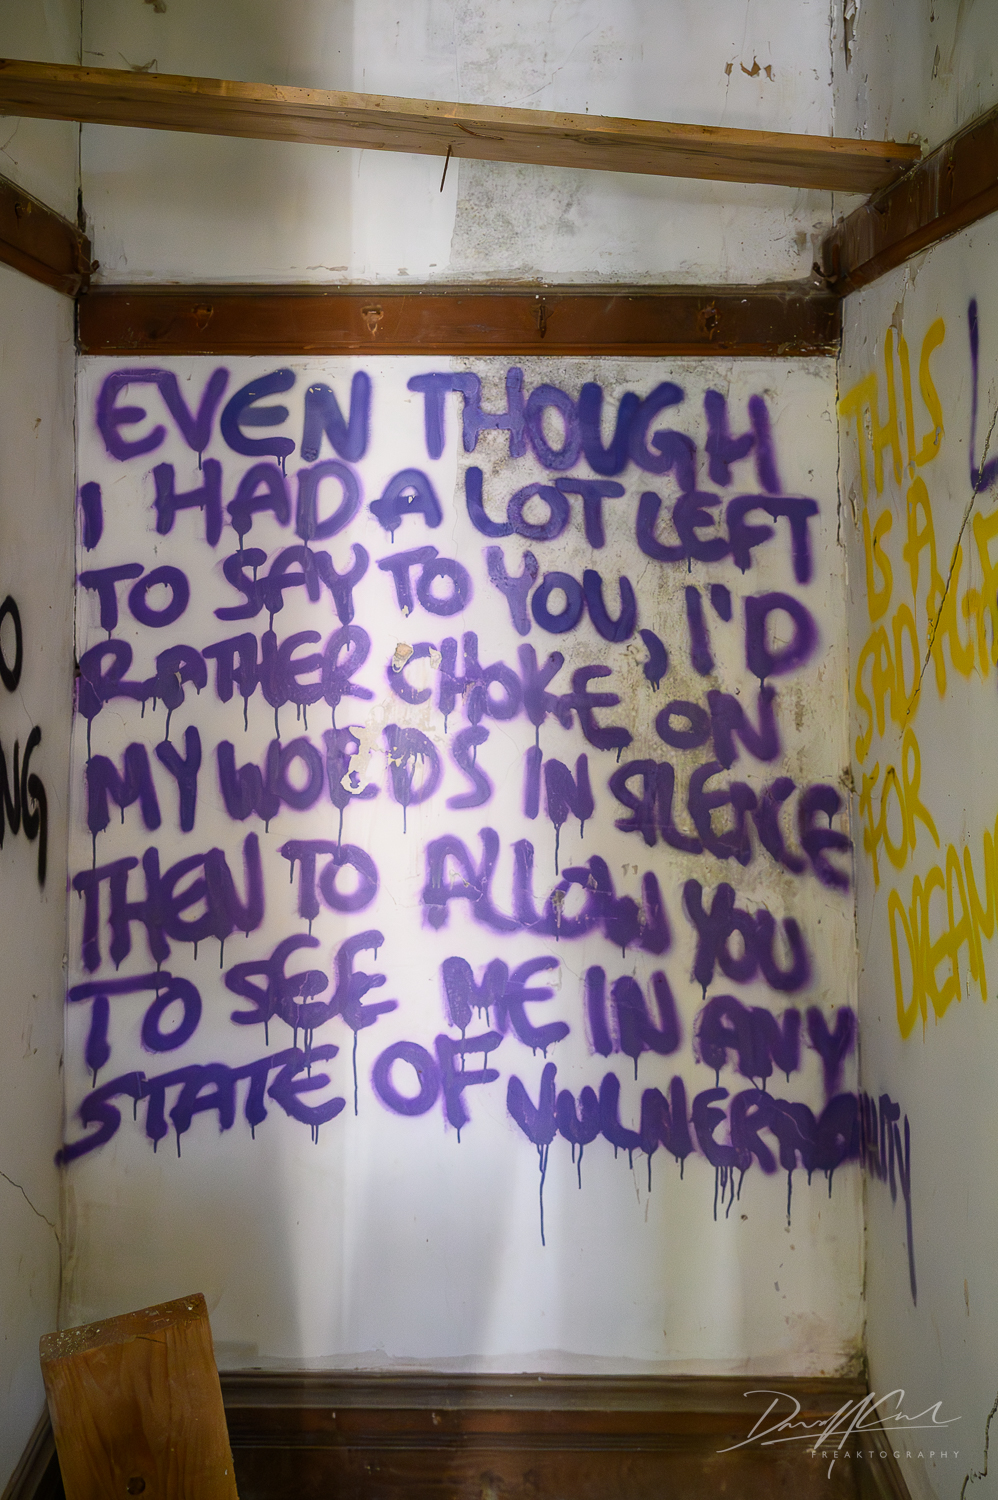 EVEN THOUGH
I HAD A LOT LEFT
TO SAY TO YOU, I'D
RATHER CHOKE ON
MY WORDS IN SILENCE
THEN TO ALLOW YOU
TO SEE ME IN ANY
STATE OF VULNERABILITY
THIS
IS A
SAD
FOR
FREAKTOGRAPHY